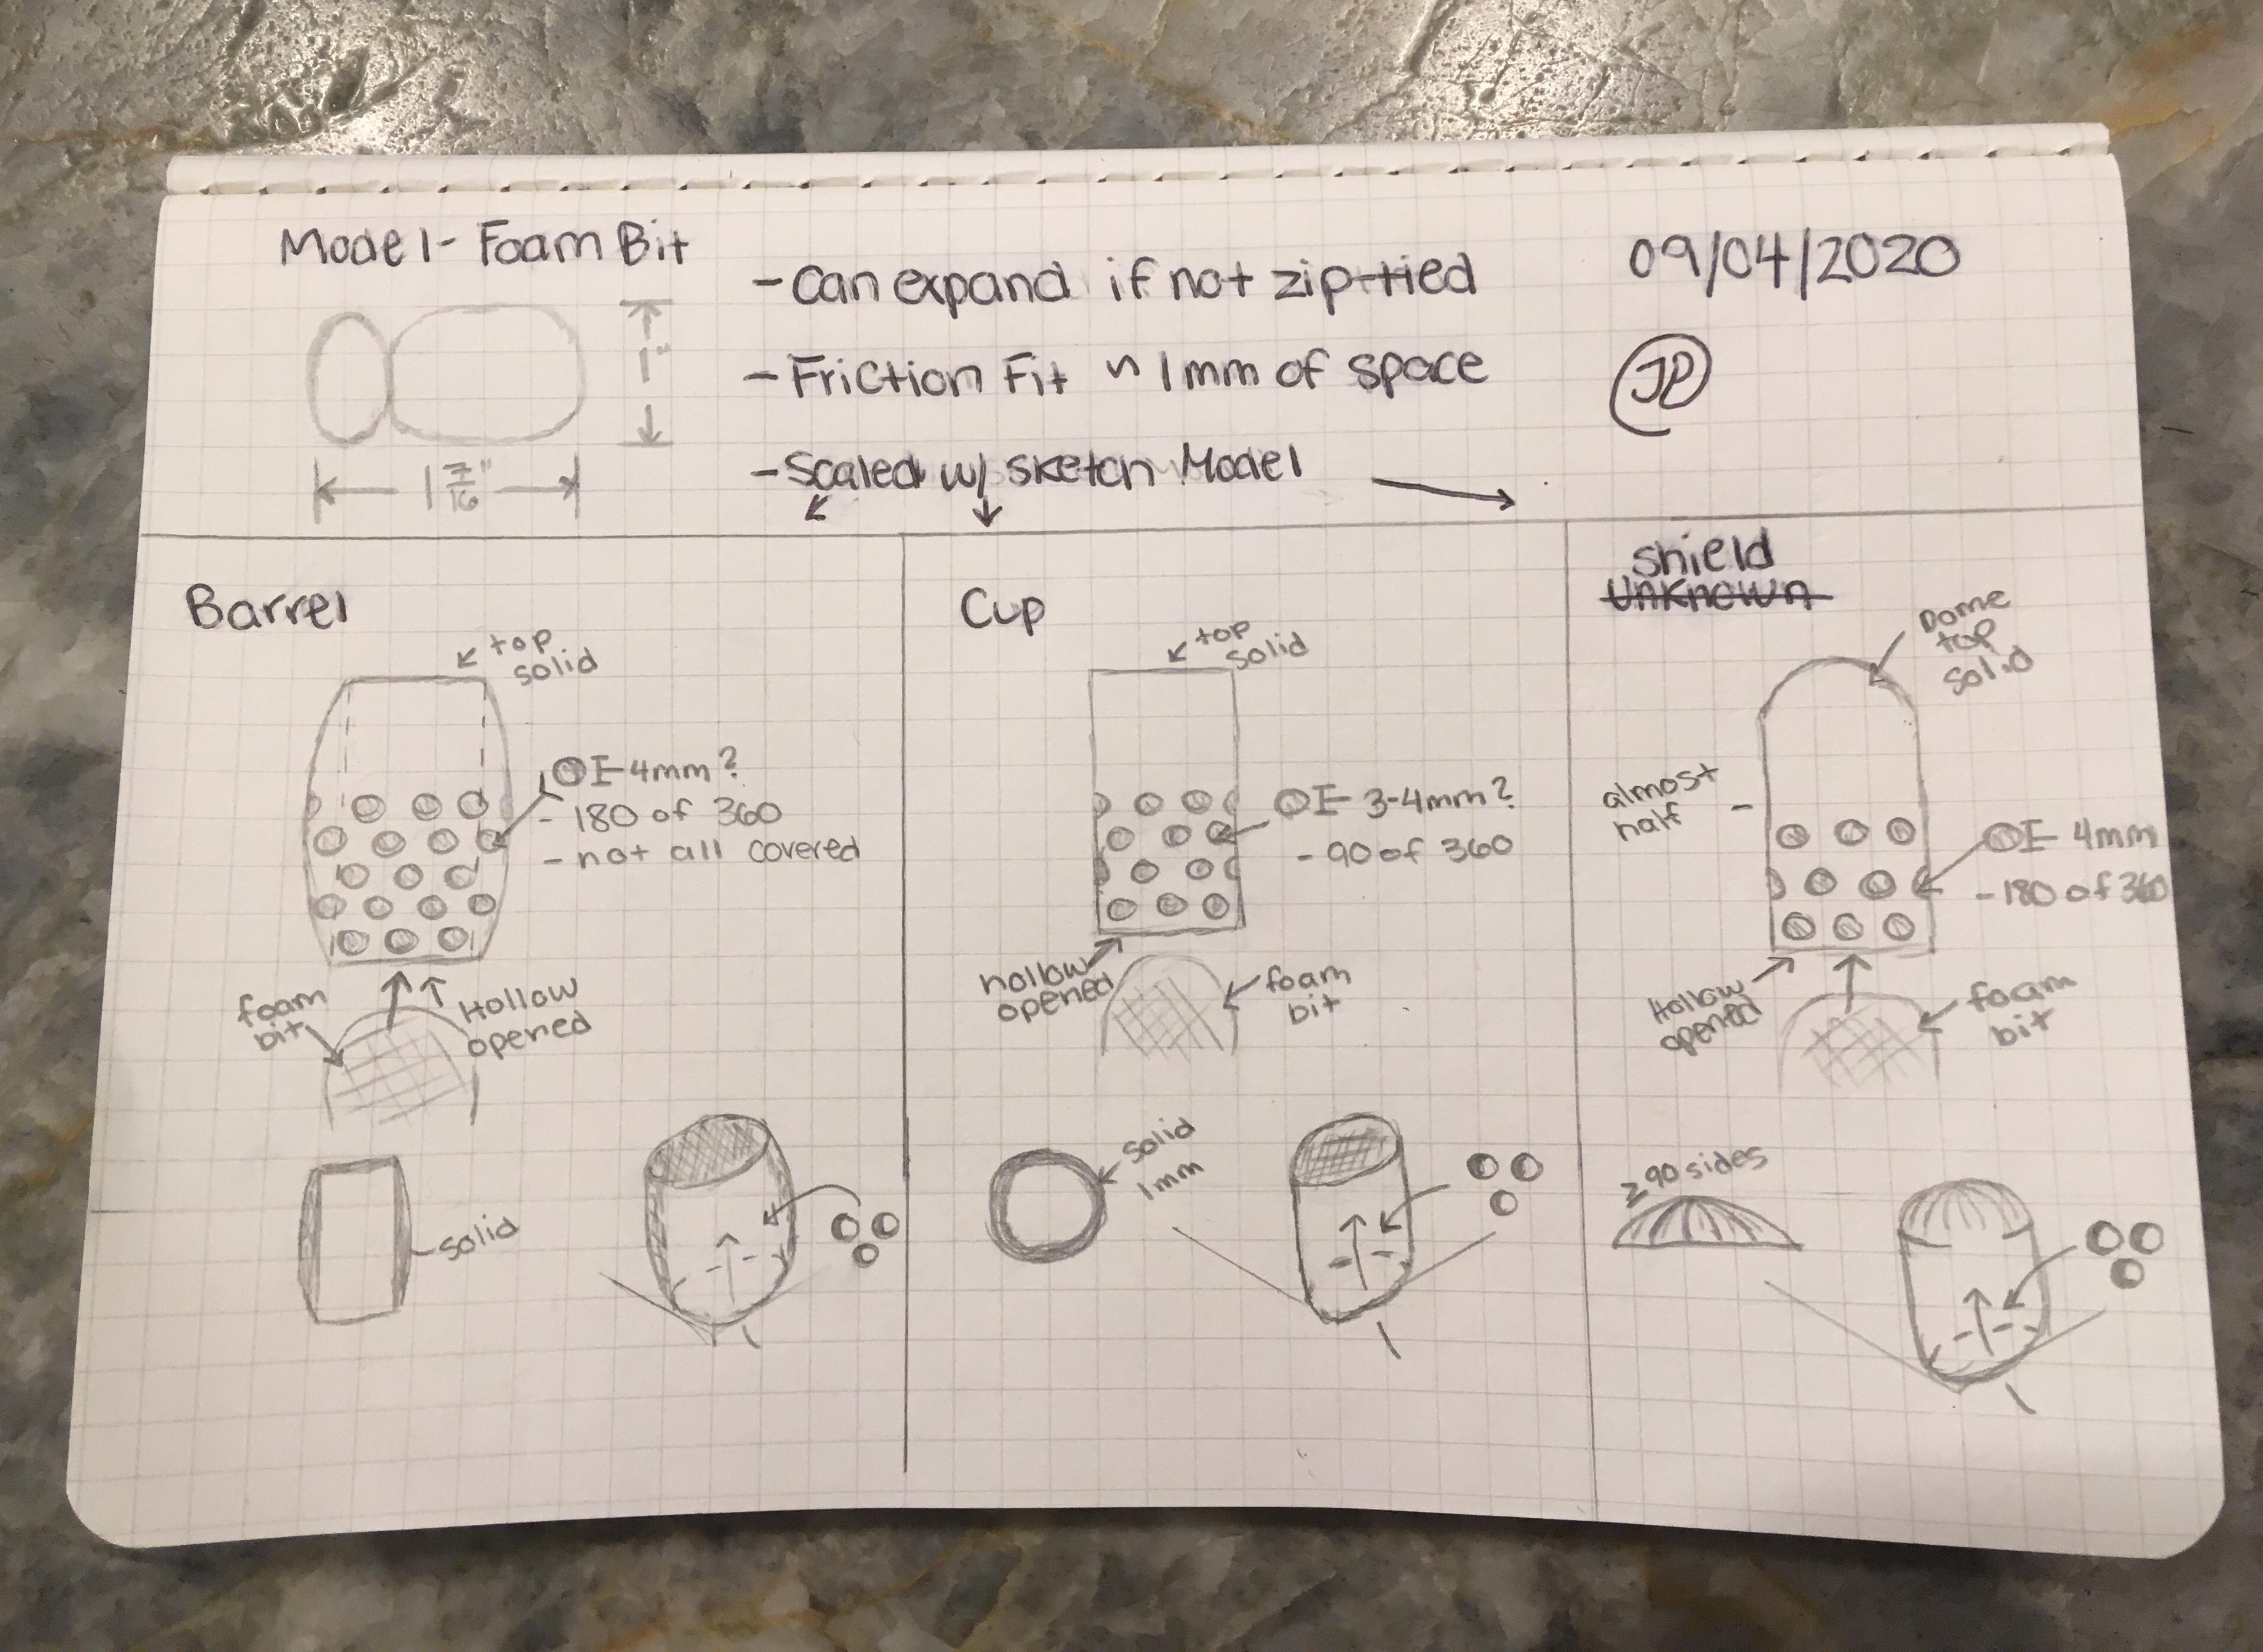 Model - Foam Bit
1"
1 7/16"
- Can expand if not zip-tied
- Friction Fit ~ 1mm of space
- Scaled w/ sketch Model
09/04/2020
JP
Barrel
top
solid
4mm?
- 180 of 360
- not all covered
foam
bit
Hollow
opened
solid
Cup
top
solid
3-4mm?
- 90 of 360
hollow
opened
foam
bit
solid
1mm
Shield
Unknown
Dome
top
solid
almost
half
4mm
- 180 of 360
Hollow
opened
foam
bit
≥90 sides